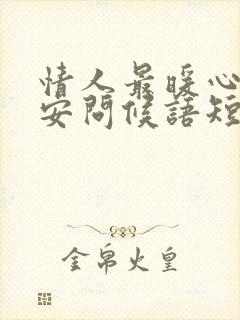 情人最暖心
安问候語短
金帛火皇